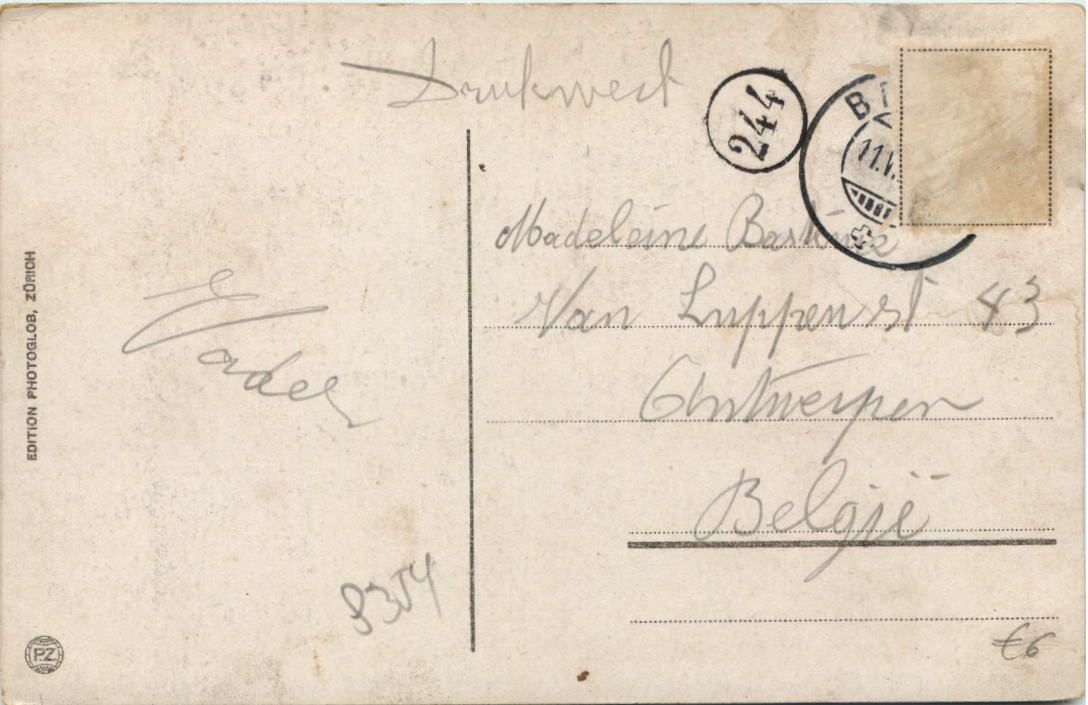 Drukwerk
244
11.V
Madeleine
Van Luppenst 43
Antwerpen
België
Vader
EDITION PHOTOGLOB, ZÜRICH
P.Z.
€6